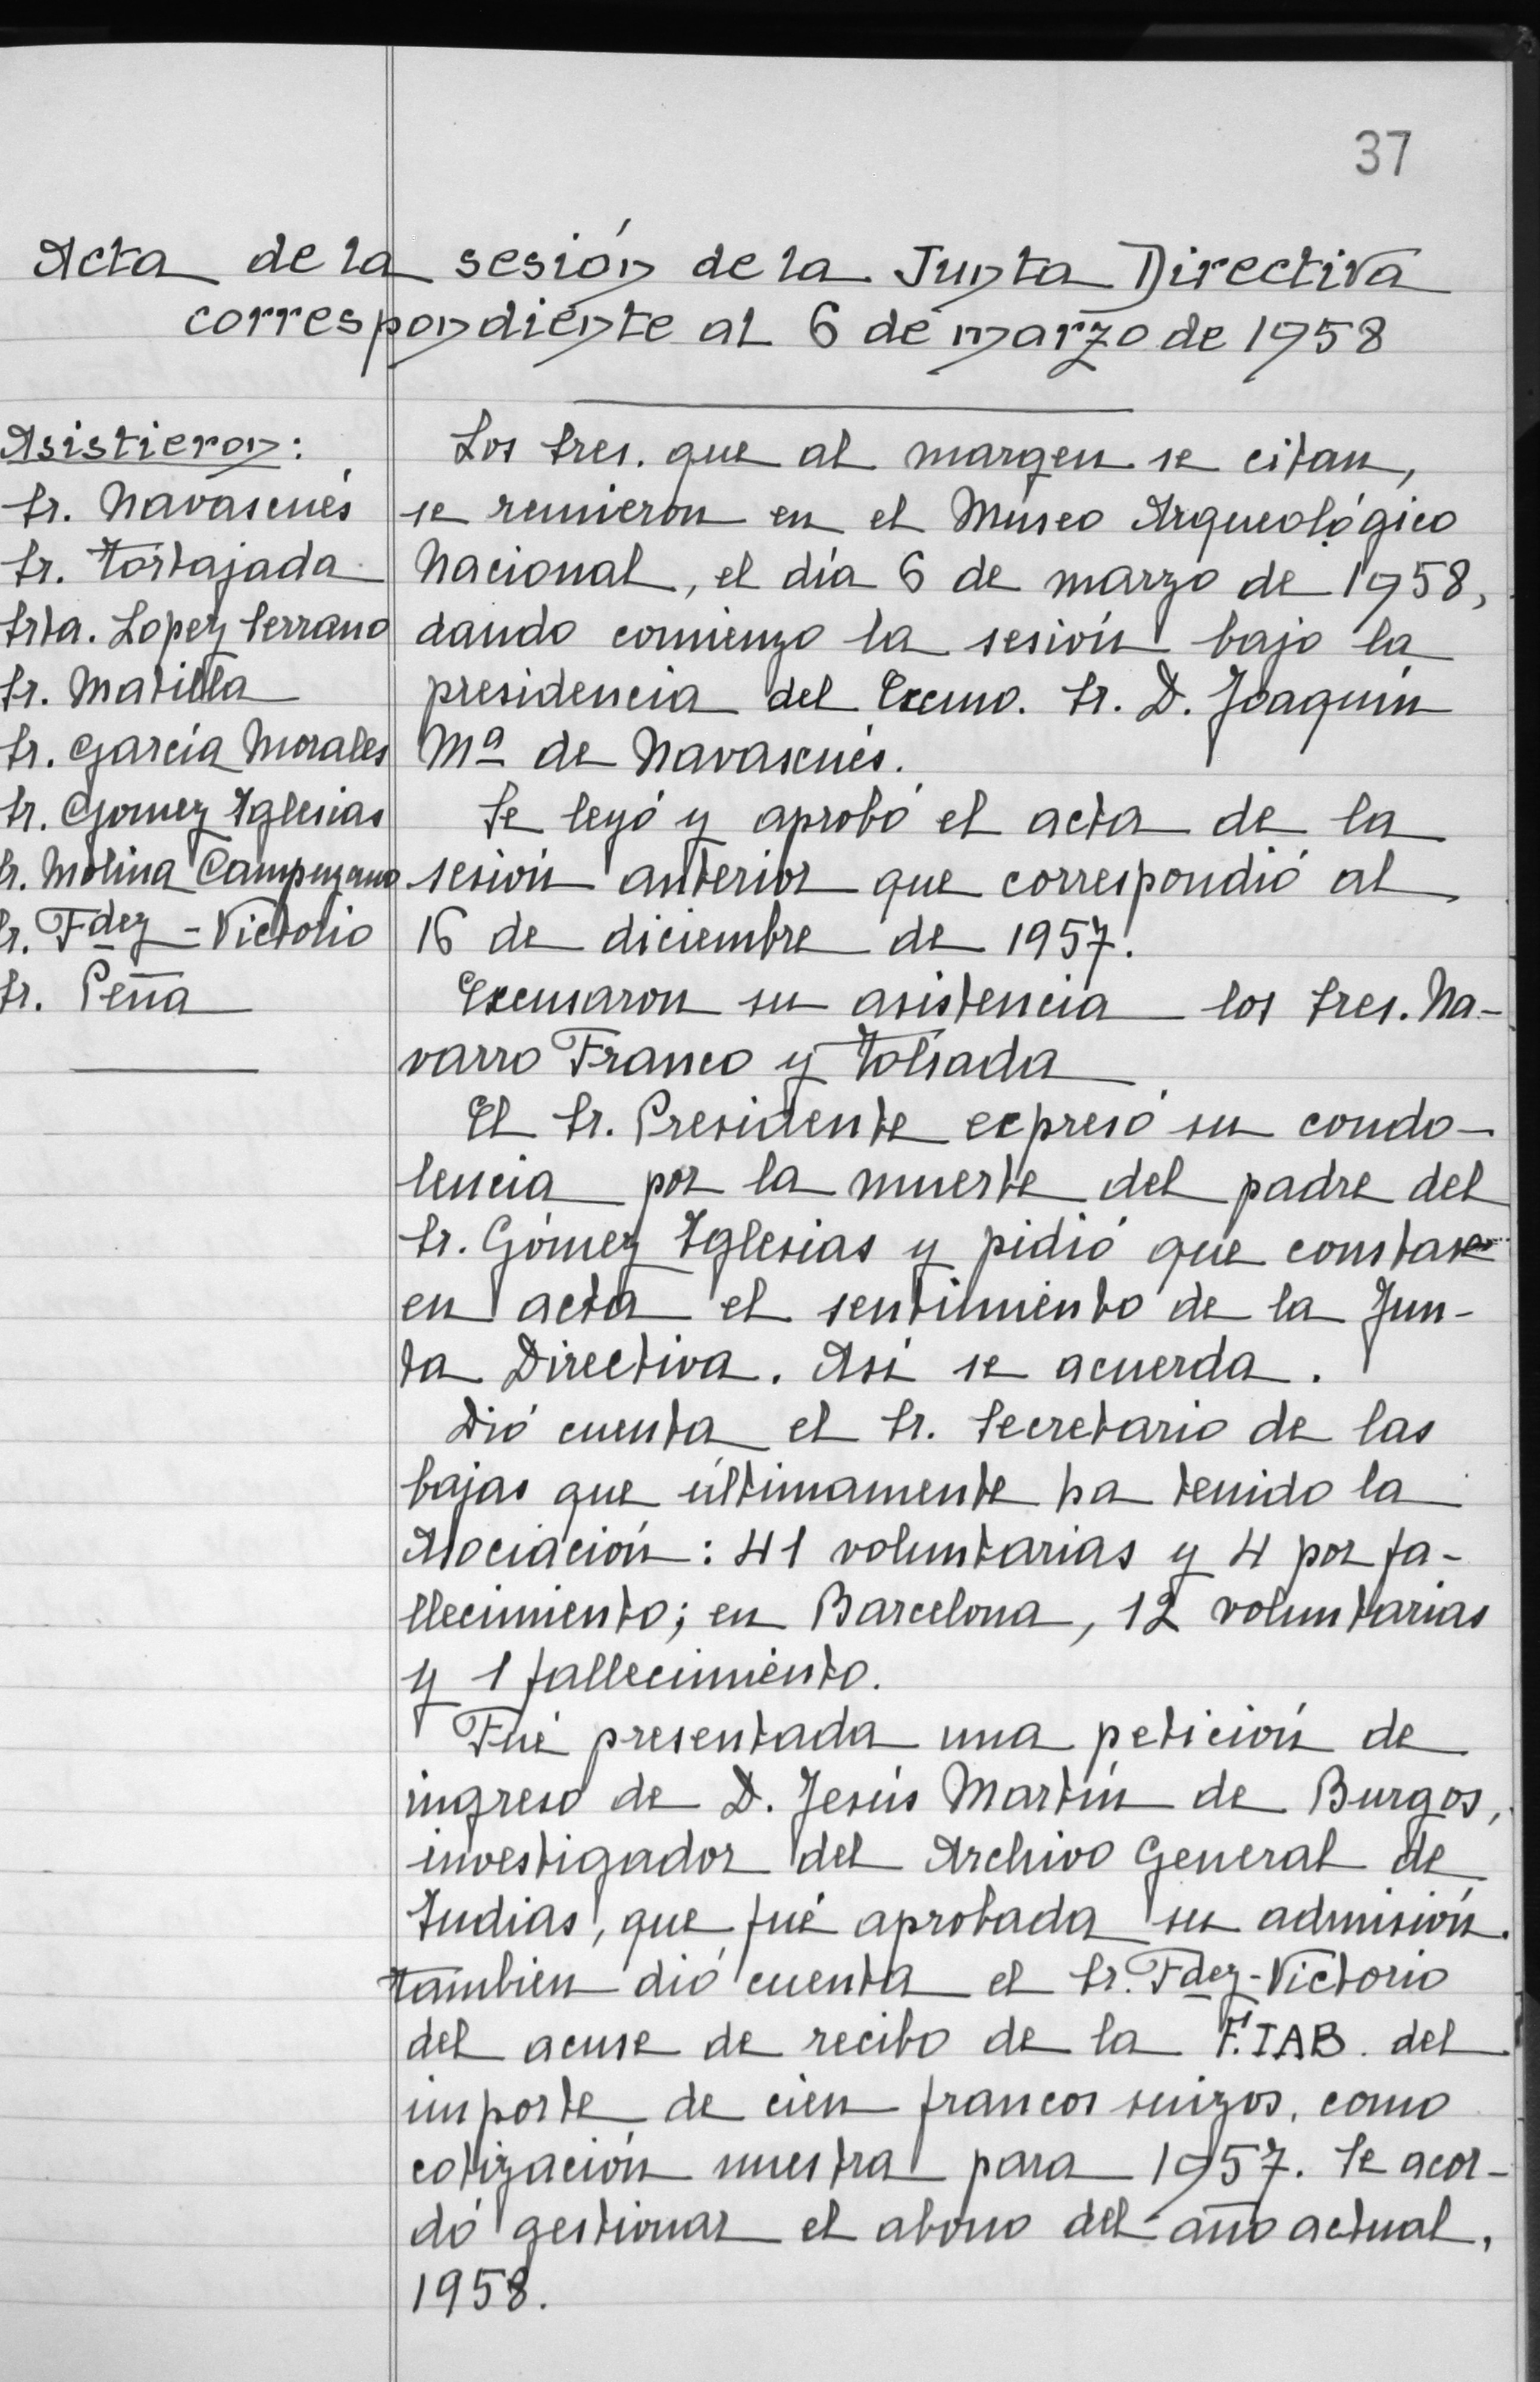 37
Acta de la sesión de la Junta Directiva
correspondiente al 6 de marzo de 1958
Asistieron:
Sr. Navascués
Sr. Tortajada
Srta. Lopez Serrano
Sr. Matilla
Sr. García Morales
Sr. Gomez Iglesias
Sr. Molina Campuzano
Sr. Fdez-Victorio
Sr. Peña
Los Sres. que al margen se citan,
se reunieron en el Museo Arqueológico
Nacional, el día 6 de marzo de 1958,
dando comienzo la sesión bajo la
presidencia del Excmo. Sr. D. Joaquín
Mª de Navascués.
Se leyó y aprobó el acta de la
sesión anterior que correspondió al
16 de diciembre de 1957.
Excusaron su asistencia los Sres. Na-
varro Franco y Tolsada
El Sr. Presidente expresó su condo-
lencia por la muerte del padre del
Sr. Gómez Iglesias y pidió que constase
en acta el sentimiento de la Jun-
ta Directiva. Así se acuerda.
Dió cuenta el Sr. Secretario de las
bajas que últimamente ha tenido la
Asociación: 41 voluntarias y 4 por fa-
llecimiento; en Barcelona, 12 voluntarias
y 1 fallecimiento.
Fué presentada una petición de
ingreso de D. Jesús Martín de Burgos,
investigador del Archivo General de
Indias, que fué aprobada su admisión.
Tambien dió cuenta el Sr. Fdez-Victorio
del acuse de recibo de la F.IAB. del
importe de cien francos suizos, como
cotización nuestra para 1957. Se acor-
dó gestionar el abono del año actual,
1958.